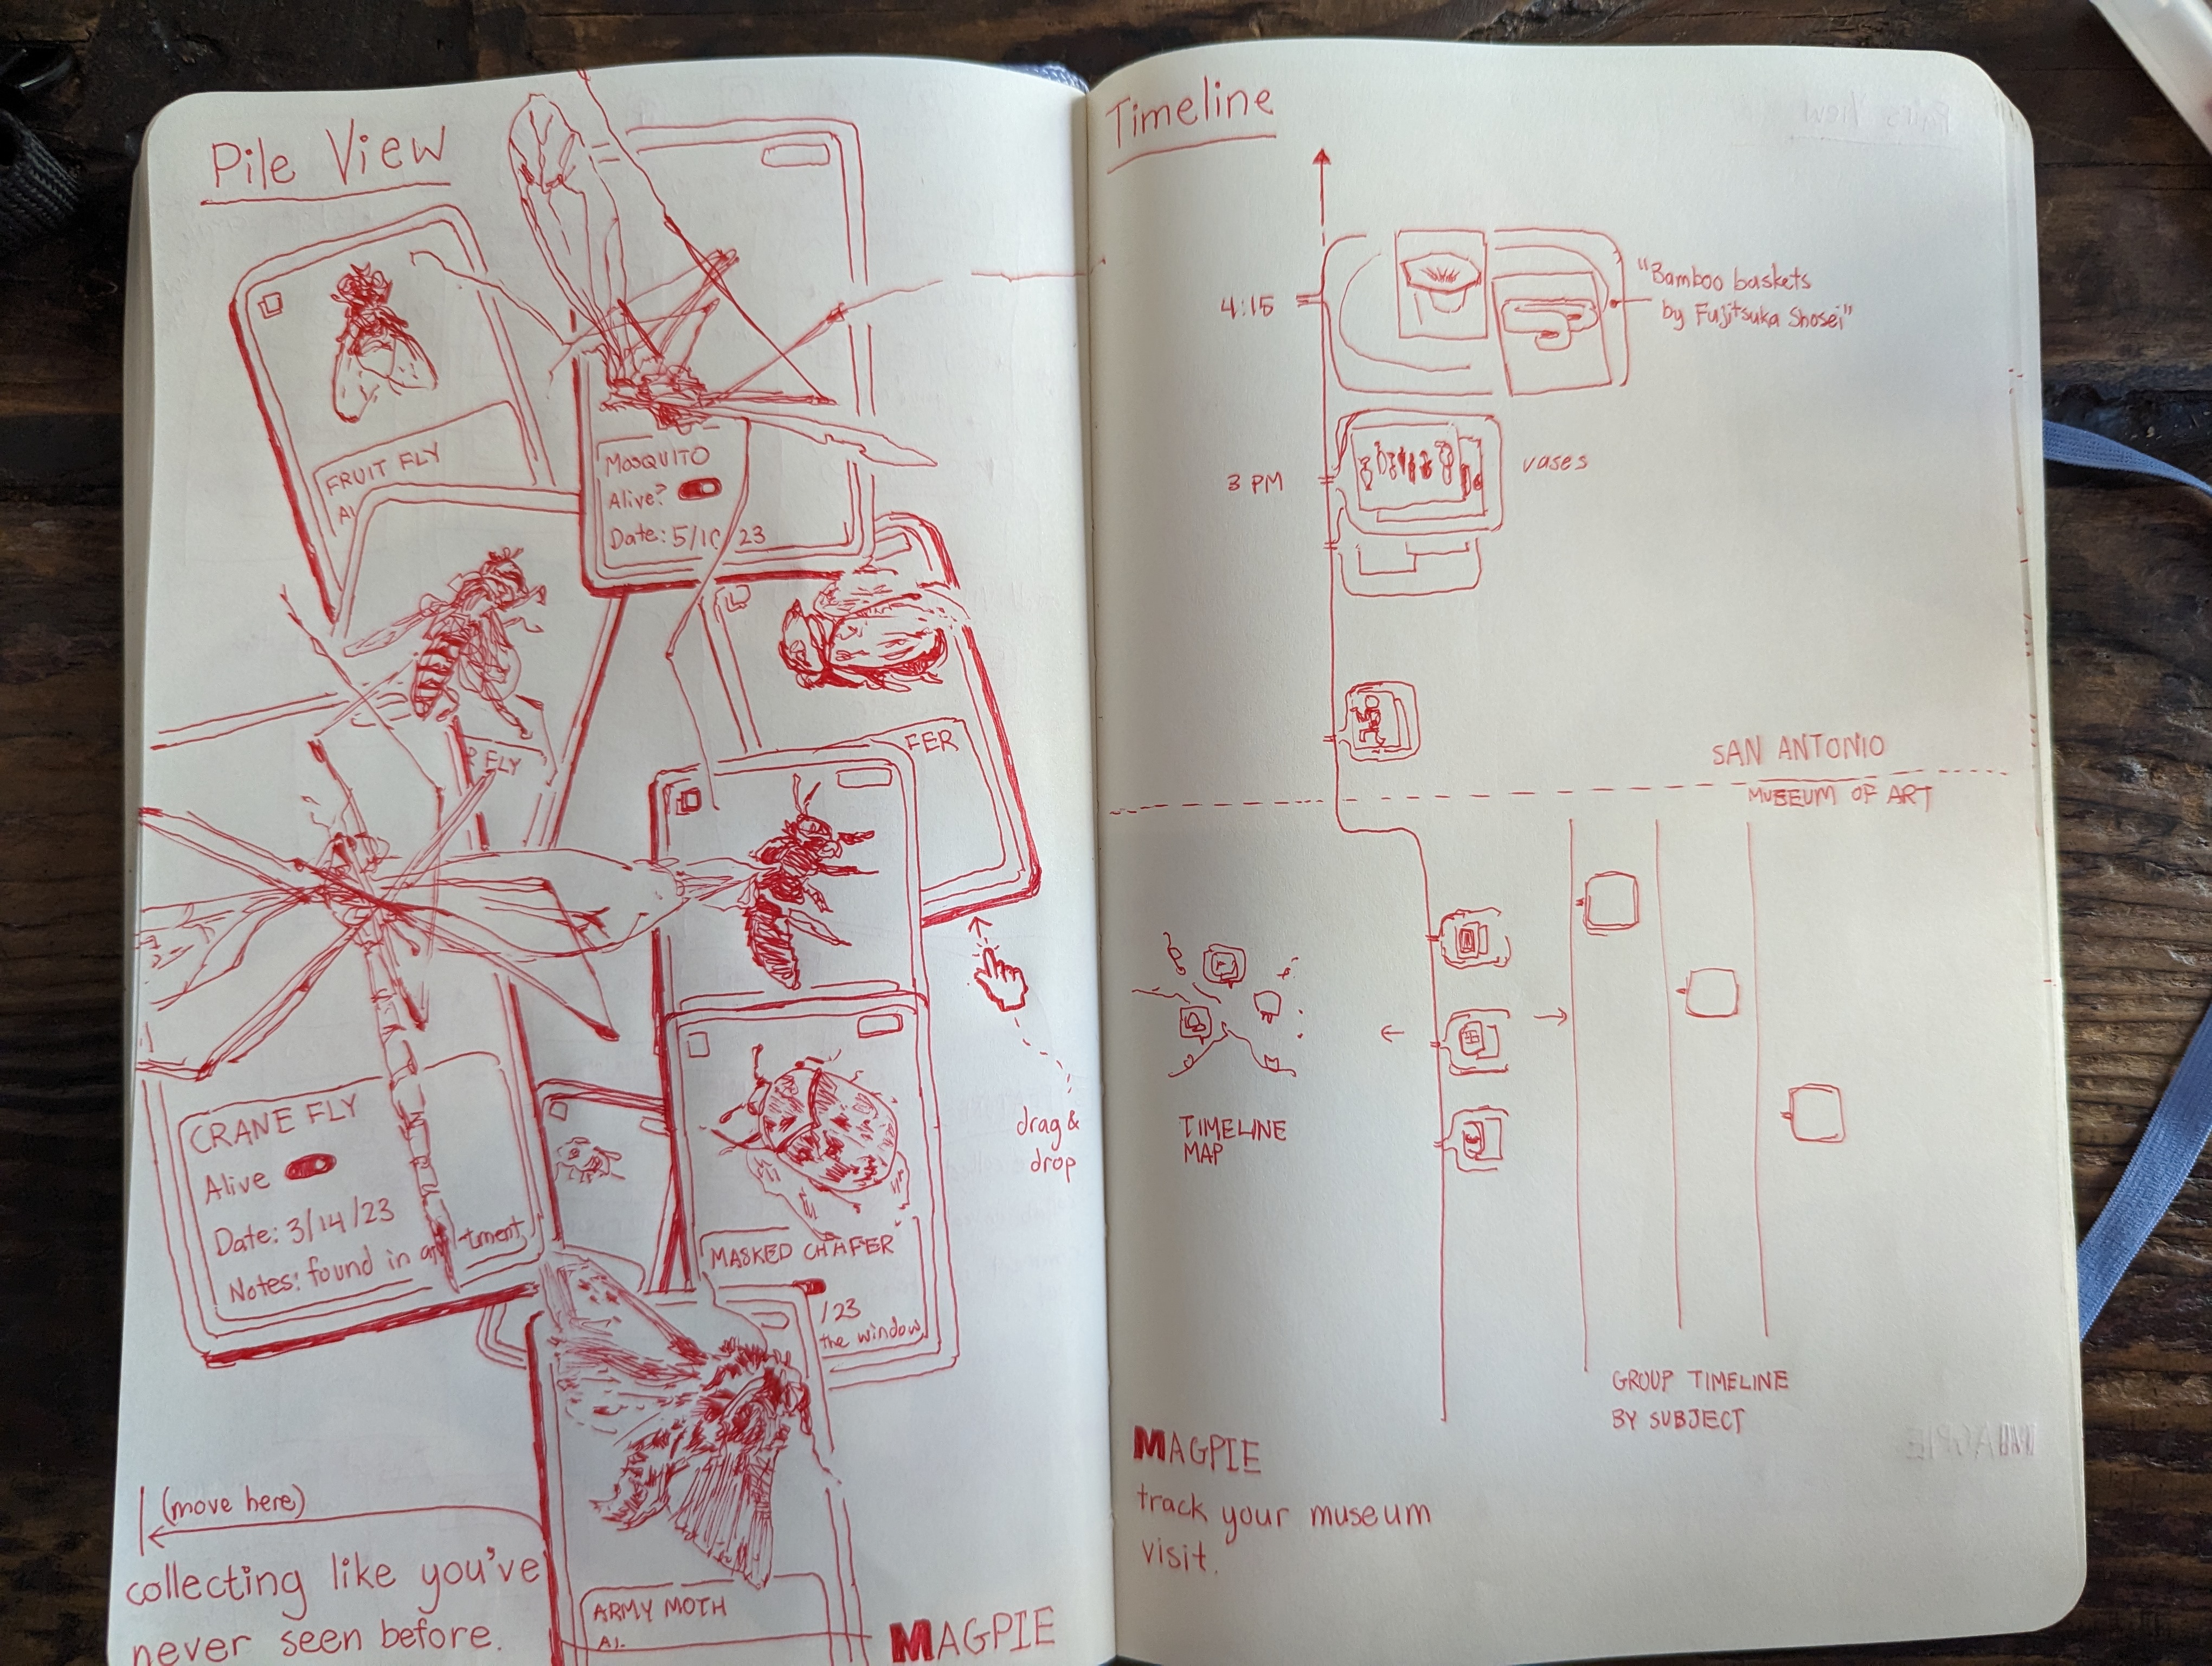 Pile View
FRUIT FLY
Al
MOSQUITO
Alive?
Date: 5/10/23
R FLY
FER
drag &
drop
CRANE FLY
Alive
Date: 3/14/23
Notes: found in ap -tment
MASKED CHAFER
/23
the window
ARMY MOTH
Al
(move here)
collecting like you've
never seen before.
MAGPIE
Timeline
4:15
"Bamboo baskets
by Fujitsuka Shosei"
3 PM
vases
SAN ANTONIO
MUSEUM OF ART
TIMELINE
MAP
GROUP TIMELINE
BY SUBJECT
MAGPIE
track your museum
visit.